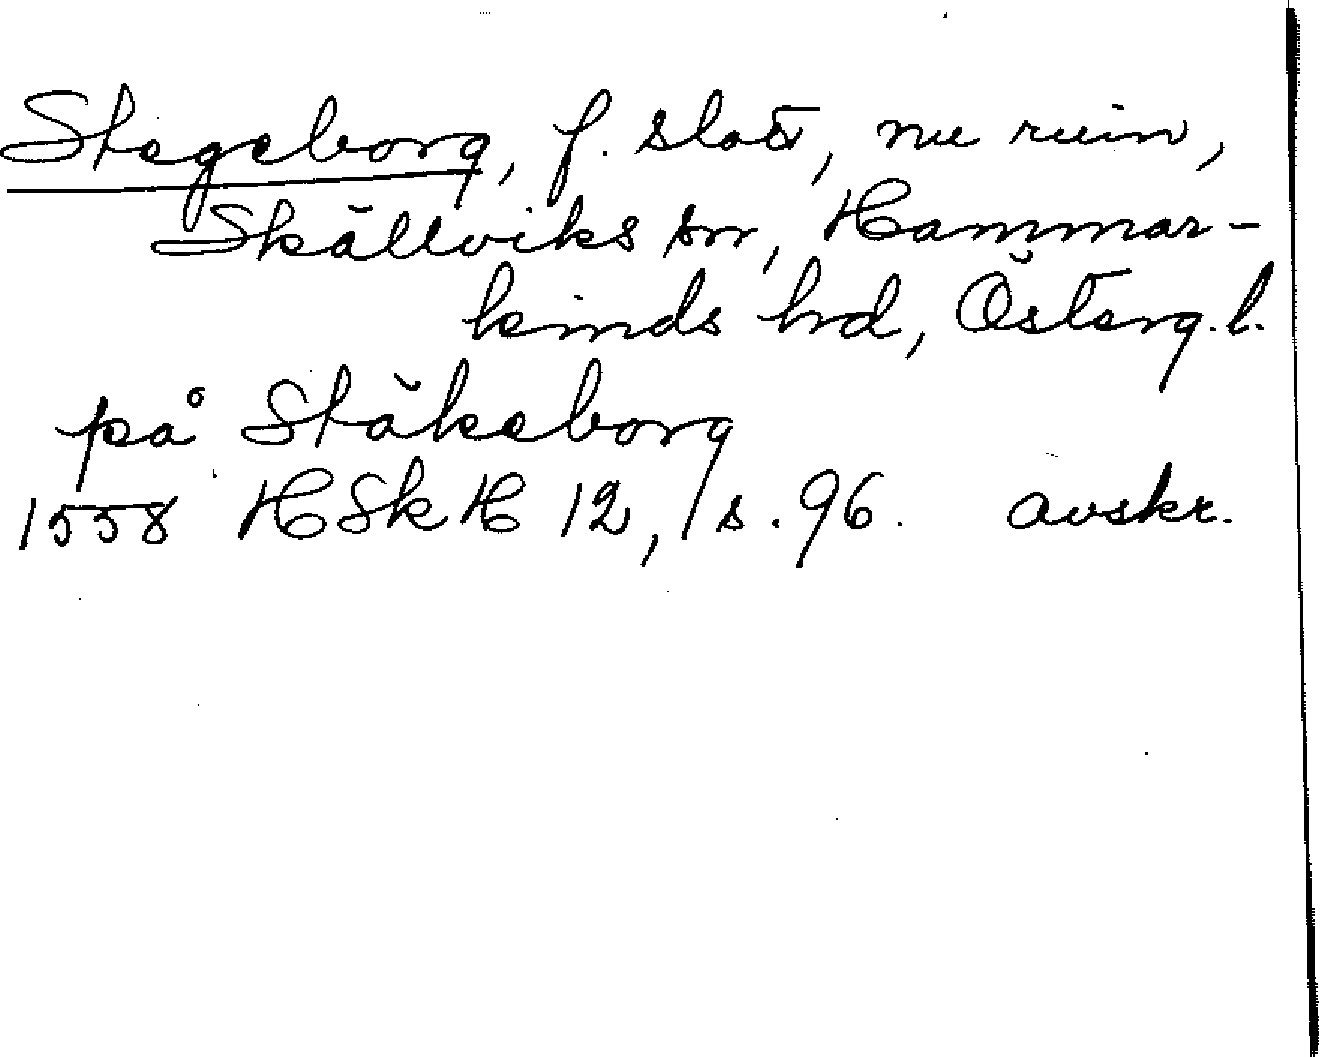 Stegeborg, f. slott, nu ruin,
Skällviks sn, Hammar-
kinds hd, Österg. l.
på Stäkeborg
1558 HSkH 12, s. 96. avskr.